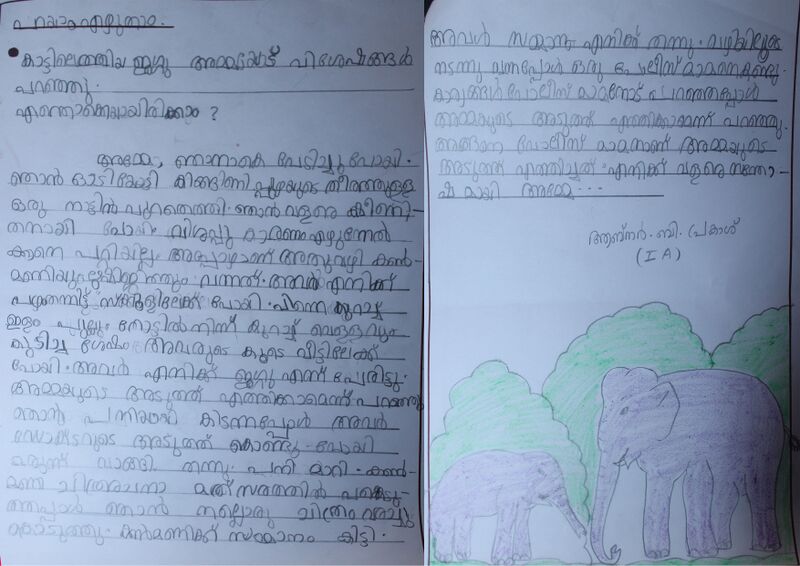 പറയാം എഴുതാം.
കാട്ടിലെത്തിയ ജഗ്ഗു അമ്മയോട് വിശേഷങ്ങൾ
പറഞ്ഞു.
എന്തൊക്കെയായിരിക്കാം ?
അമ്മേ, ഞാനാകെ പേടിച്ചു പോയി.
ഞാൻ ഓടിയോടി കിങ്ങിണി പ്പുഴയുടെ തീരത്തുള്ള
ഒരു നാട്ടിൽ പറന്നെത്തി. ഞാൻ വളരെ ക്ഷീണി-
തനായി പോയി. വിശപ്പു കാരണം എഴുന്നേൽ
ക്കാനെ പറ്റിയില്ല. അപ്പോഴാണ് അതുവഴി കൺ-
മണിയും വന്നത്. അവർ എനിക്ക്
പഴംതന്നിട്ട് സ്കൂളിലേക്ക് പോയി. പിന്നെ കുറച്ച്
ഇളം പുല്ലും തോട്ടിൽ നിന്ന് കുറച്ച് വെള്ളവും
കുടിച്ച ശേഷം അവരുടെ കൂടെ വീട്ടിലേക്ക്
പോയി. അവർ എനിക്ക് ജഗ്ഗു എന്ന് പേരിട്ടു.
അമ്മയുടെ അടുത്ത് എത്തിക്കാമെന്ന് പറഞ്ഞു
ഞാൻ പനിയായി കിടന്നപ്പോൾ അവർ
ഡോക്ടറുടെ അടുത്ത് കൊണ്ടു പോയി
മരുന്ന് വാങ്ങി തന്നു. പനി മാറി. കൺ-
മണി ചിത്രരചനാ മത്സരത്തിൽ പങ്കെടു-
ത്തപ്പോൾ ഞാൻ നല്ലൊരു ചിത്രം വരച്ചു
കൊടുത്തു. കൺമണിക്ക് സമ്മാനം കിട്ടി.
അവൾ സമ്മാനം എനിക്ക് തന്നു. വഴിയിലൂടെ
നടന്നു വന്നപ്പോൾ ഒരു പോലീസ് മാമനെ കണ്ടു.
കാര്യങ്ങൾ പോലീസ് മാമനോട് പറഞ്ഞപ്പോൾ
അമ്മയുടെ അടുത്ത് എത്തിക്കാമെന്ന് പറഞ്ഞു.
അങ്ങനെ പോലീസ് മാമനാണ് അമ്മയുടെ
അടുത്ത് എത്തിച്ചത്. എനിക്ക് വളരെ സന്തോ-
ഷമായി അമ്മേ...
ആബ്നർ. ബി. പ്രകാശ്
(I A)